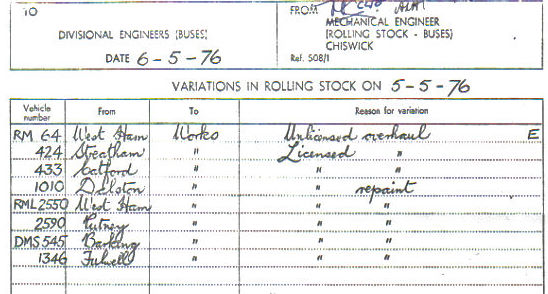 TO
DIVISIONAL ENGINEERS (BUSES)
DATE 6-5-76
FROM
MECHANICAL ENGINEER
(ROLLING STOCK - BUSES)
CHISWICK
Ref. 508/1
VARIATIONS IN ROLLING STOCK ON 5-5-76
Vehicle number From To Reason for variation
RM 64 West Ham Works Unlicensed overhaul E
424 Streatham " Licensed "
433 Catford " " "
1010 Dalston " " repaint
RML2550 West Ham " " "
2590 Putney " " "
DMS 545 Barking " " "
1346 Fulwell " " "